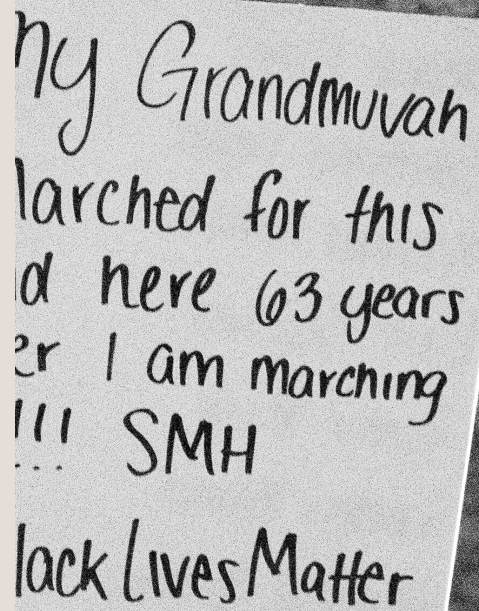 my Grandmuvah
Marched for this
and here 63 years
er I am marching
!!! SMH
Black Lives Matter